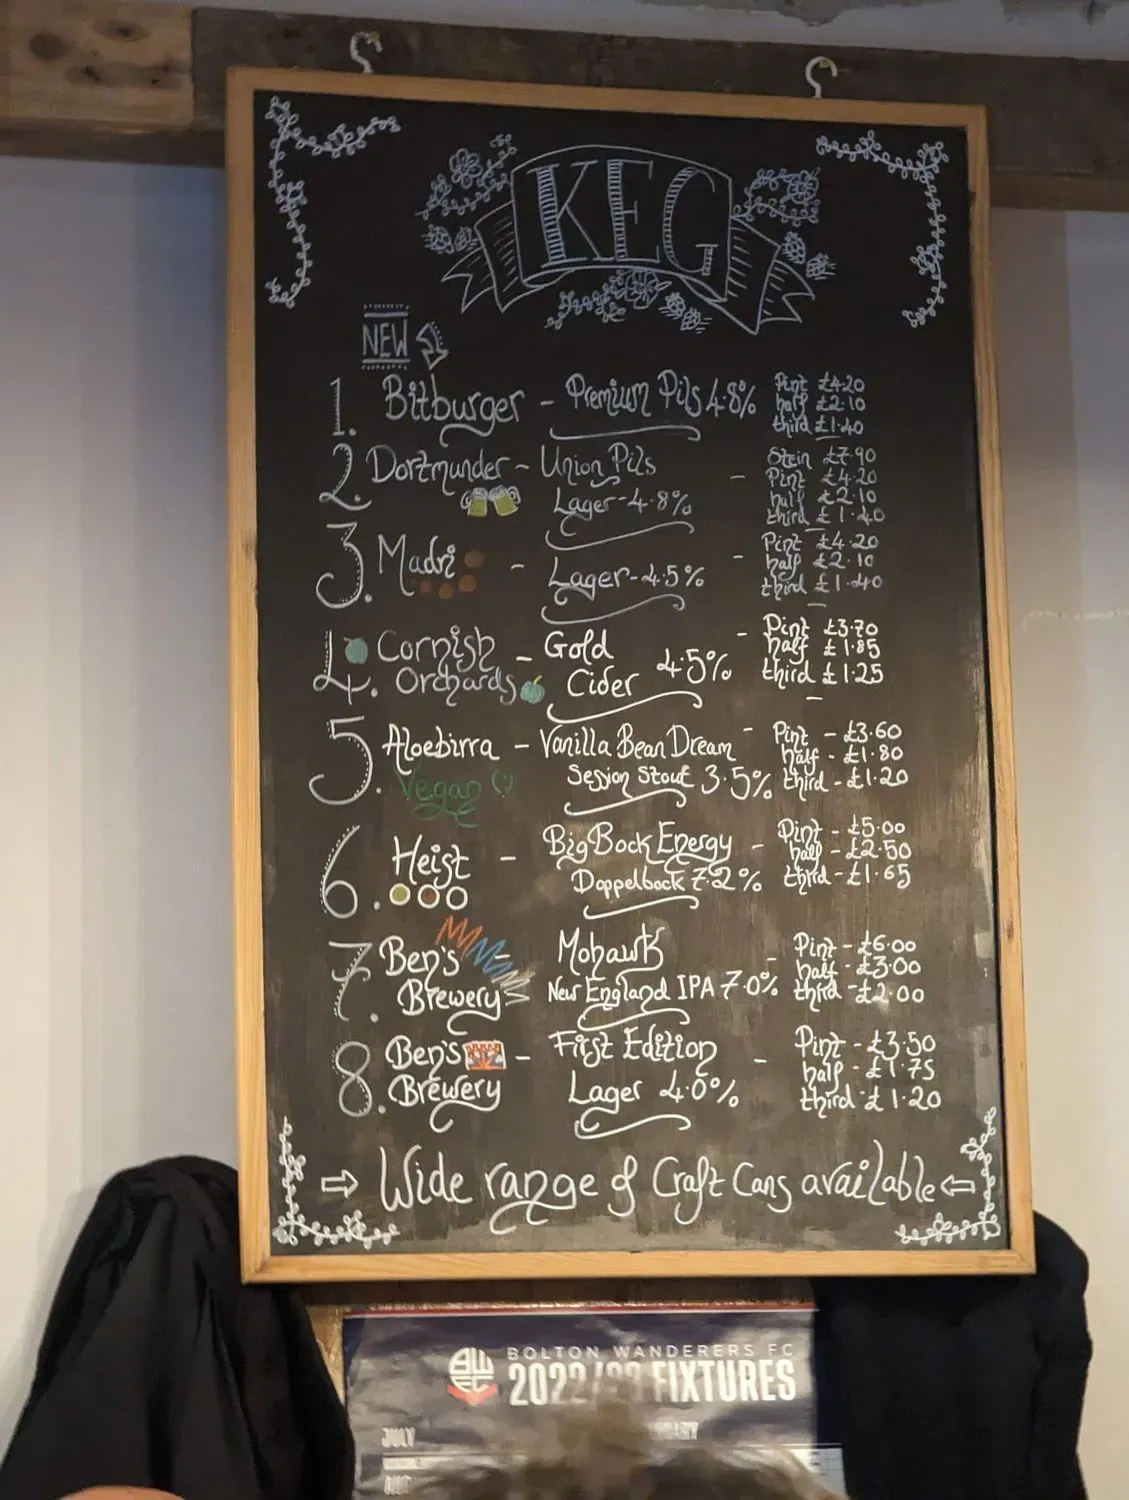 KEG
NEW
1. Bitburger - Premium Pils 4.8%
Pint £4.20
half £2.10
third £1.40
2. Dortmunder - Union Pils
Lager - 4.8% -
Stein £7.90
Pint £4.20
half £2.10
third £1.40
3. Madri - Lager - 4.5% -
Pint £4.20
half £2.10
third £1.40
4. Cornish Orchards - Gold
Cider 4.5% -
Pint £3.70
half £1.85
third £1.25
5. Aloebirra - Vanilla Bean Dream -
Vegan
Session Stout 3.5%
Pint - £3.60
half - £1.80
third - £1.20
6. Heist - Big Bock Energy -
Doppelbock 7.2%
Pint - £5.00
half - £2.50
third - £1.65
7. Ben's Brewery - Mohawk -
New England IPA 7.0%
Pint - £6.00
half - £3.00
third - £2.00
8. Ben's Brewery - First Edition -
Lager 4.0%
Pint - £3.50
half - £1.75
third - £1.20
Wide range of Craft Cans available
BOLTON WANDERERS FC
2022/23 FIXTURES
JULY